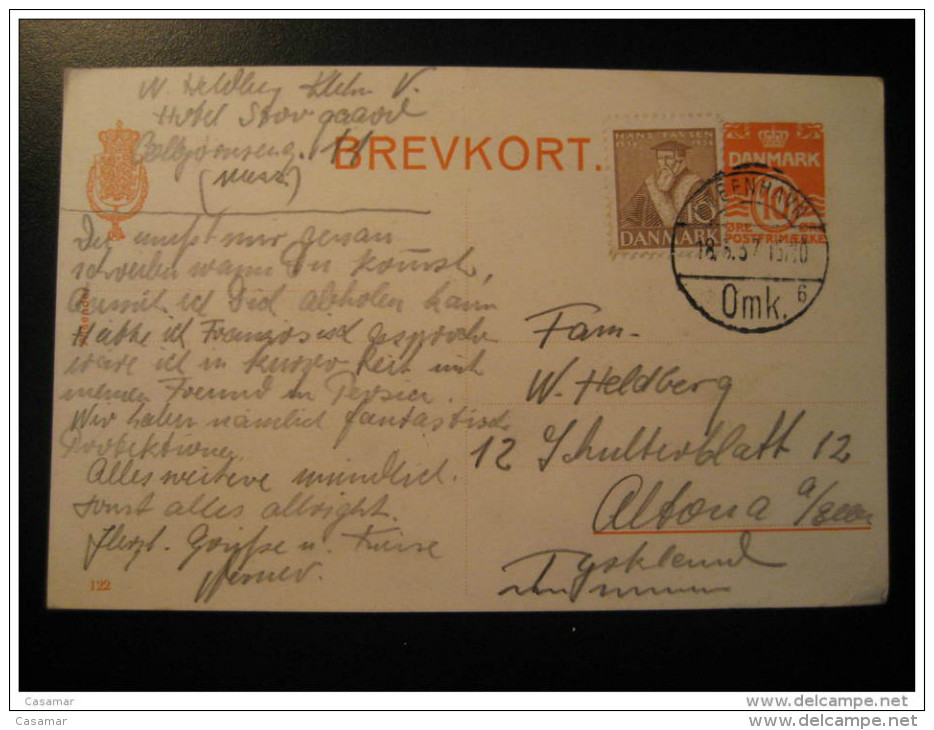 W. Heldberg Kbhn V.
Hotel Stovgaard
11
BREVKORT.
HANS TAVSEN
15
DANMARK
DANMARK
10
ØRE ØRE
POSTFRIMÆRKE
KØBENHAVN
18.3.37 15/20
Omk. 6
Afsender
Du mußt mir genau
schreiben wann Du kommst,
damit ich Dich abholen kann
Hätte ich Französisch gesprochen
wäre ich in kurzer Zeit mit
meinem Freund in Persien.
Wir haben nämlich fantastische
Protektionen
Alles weitere mündlich.
sonst alles allright.
Herzl. Grüße u. Küsse
Werner.
122
Fam.
W. Heldberg
12 Schulterblatt 12
Altona a/Elbe
Tyskland
Casamar
Casamar
www.delcampe.net
www.delcampe.net